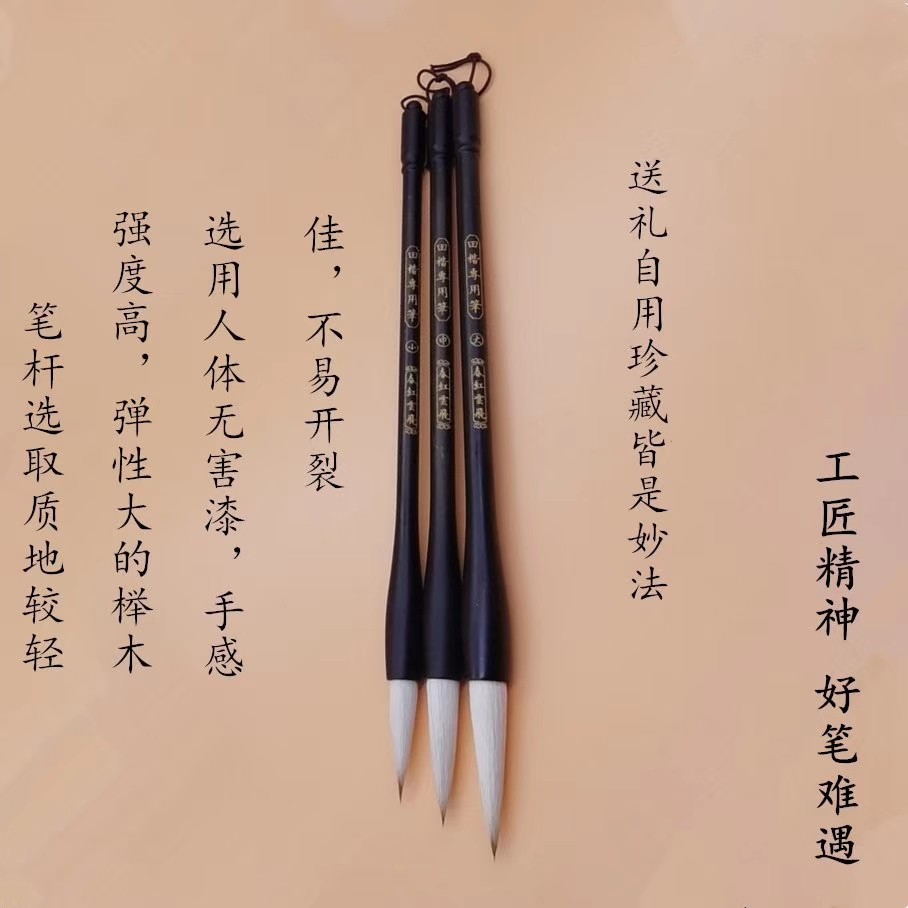 笔杆选取质地较轻
强度高，弹性大的榉木
选用人体无害漆，手感
佳，不易开裂
田楷專用筆 小 春紅雲飛
田楷專用筆 中 春紅雲飛
田楷專用筆 大 春紅雲飛
送礼自用珍藏皆是妙法
工匠精神 好笔难遇